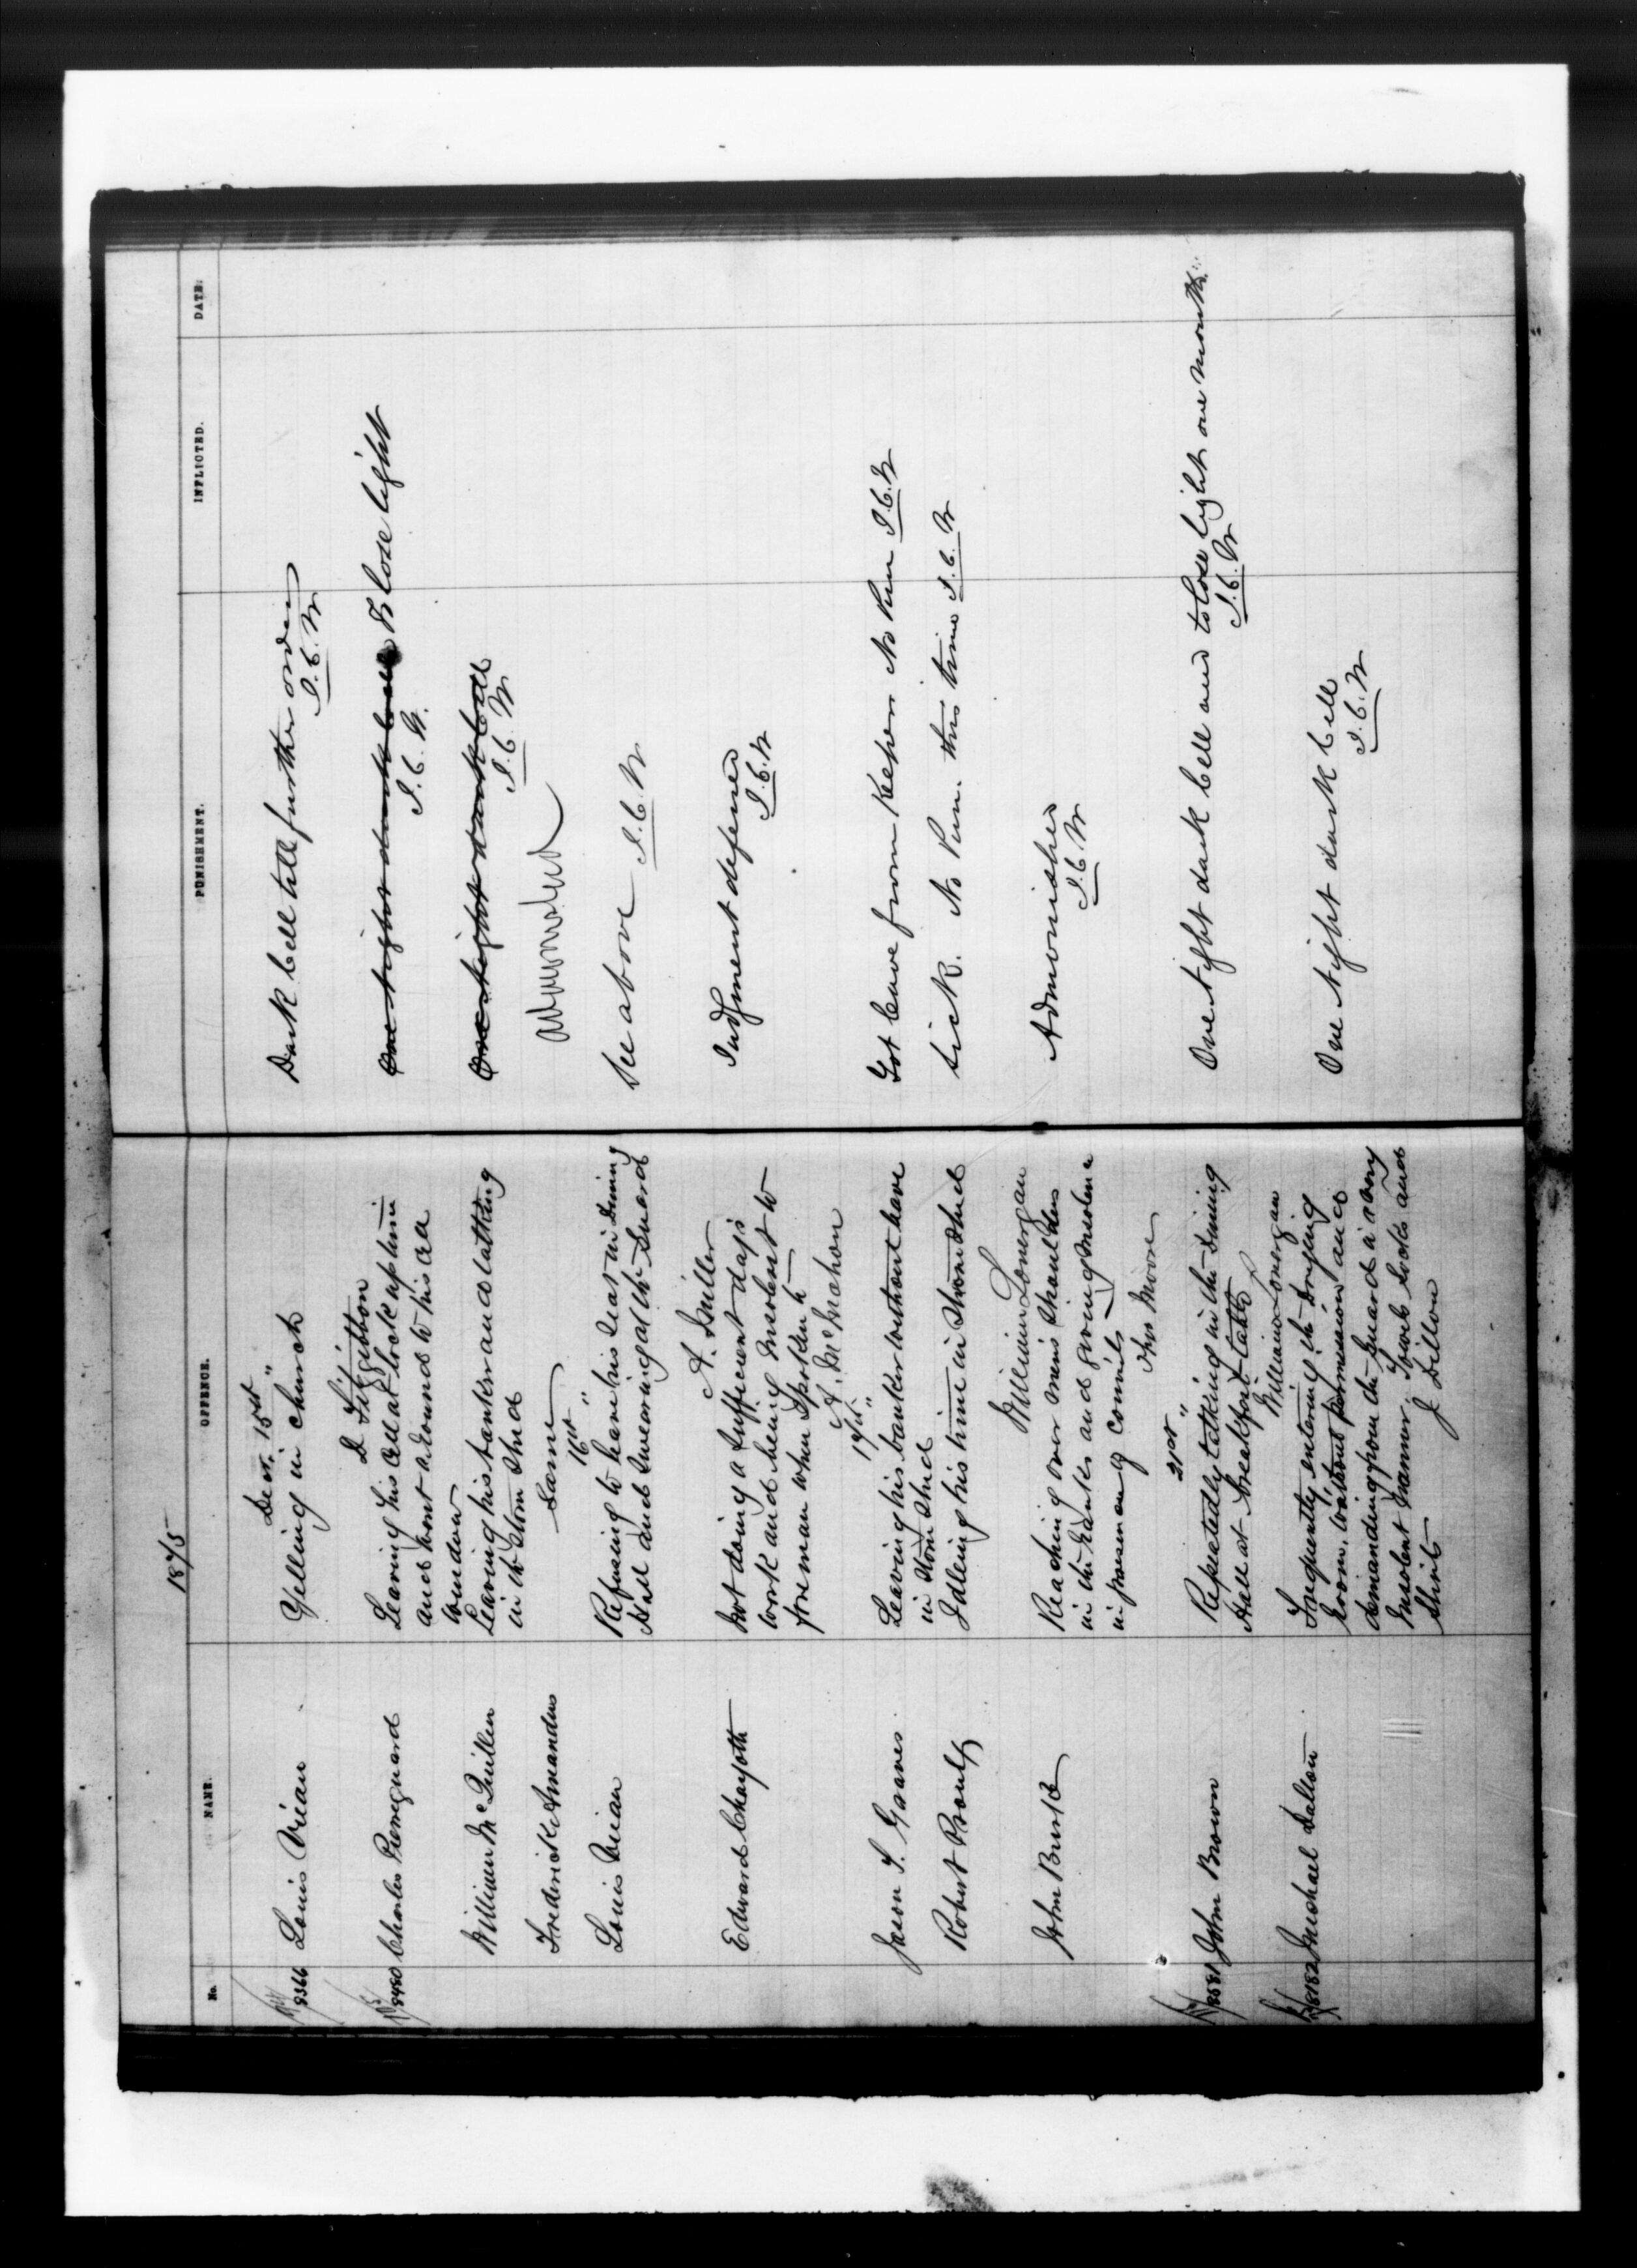 1875
No.
NAME.
OFFENCE.
PUNISHMENT.
INFLICTED.
DATE.
Decr. 15th "
8366 Louis Vivian
Yelling in church
Dark Cell till further orders
J.C.W
8480 Charles Pierreguard
Leaving his Cell at lock up time
and went around to his Cell
window
to lose light
J.C.W.
William McQuillen
Leaving his banker and talking
in the Stone Shed
One Night dark Cell
J.C.W
Frederick Amandus
Same
Admonished
16th "
Louis Vivian
Refusing to have his Seat in Dining
Hall and Swearing at the Guard
A. Miller
See above J.C.W
Edward Chayoth
Not doing a Sufficient day's
work and being Insolent to
foreman when Spoken to
A. McMahon
Judgment defered
J.C.W
17th "
Jason S. Graves
Leaving his banker without leave
in Stone Shed
Got leave from Keeper No Pun J.C.W
Robert Proulx
Idleing his time in Stone Shed
William Lonergan
Sick. No Pun. this time J.C.W
John Burke
Reaching over men's Shoulders
in the Ranks and giving Insolence
in presence of convicts
Thos Moore
Admonished
J.C.W
21st "
8581 John Brown
Repeatedly talking in the Dining
Hall at breakfast table
William Lonergan
One Night dark Cell and to lose light one month.
J.C.W
8182 Michael Dalton
Frequently entering the Drying
Room, without permission and
demanding from the Guard in a very
Insolent Manner, Towels Socks and
Shirts
J Dillon
One Night dark Cell
J.C.W